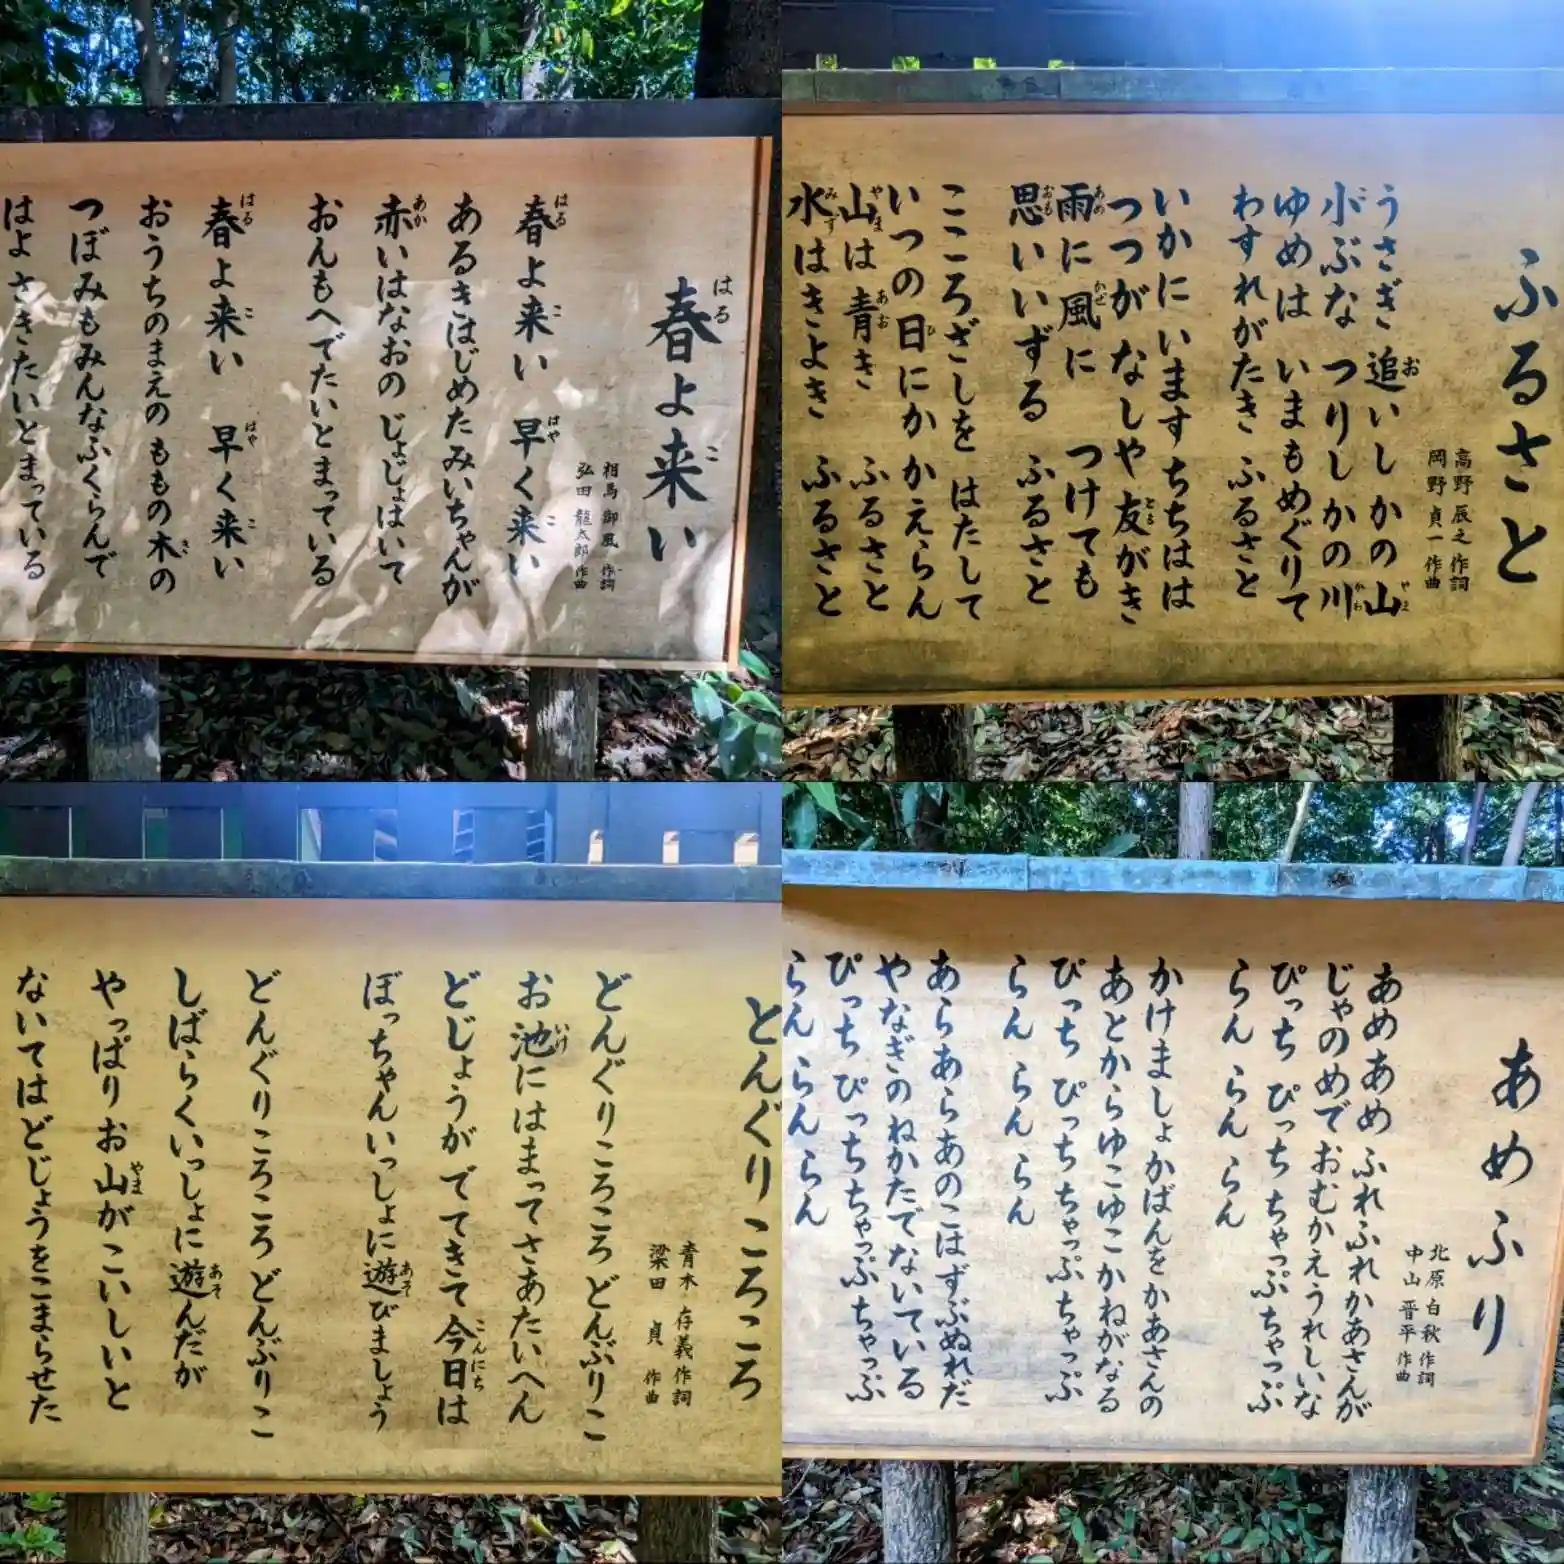 春よ来い
相馬 御風 作詞
弘田 龍太郎 作曲
春よ来い 早く来い
あるきはじめたみいちゃんが
赤いはなおの じょじょはいて
おんもへでたいとまっている
春よ来い 早く来い
おうちのまえの ももの木の
つぼみもみんなふくらんで
はよ さきたいとまっている
ふるさと
高野 辰之 作詞
岡野 貞一 作曲
うさぎ 追いし かの山
小ぶな つりし かの川
ゆめは いまもめぐりて
わすれがたき ふるさと
いかにいます ちちはは
つつがなしや 友がき
雨に風に つけても
思いいずる ふるさと
こころざしを はたして
いつの日にか かえらん
山は 青き ふるさと
水は きよき ふるさと
とんぐりころころ
青木 存義 作詞
梁田 貞 作曲
どんぐりころころ どんぶりこ
お池にはまってさあたいへん
どじょうがでてきて今日は
ぼっちゃんいっしょに遊びましょう
どんぐりころころ どんぶりこ
しばらくいっしょに遊んだが
やっぱりお山がこいしいと
ないてはどじょうをこまらせた
あめふり
北原 白秋 作詞
中山 晋平 作曲
あめあめ ふれふれかあさんが
じゃのめでおむかえうれしいな
ぴっち ぴっち ちゃっぷちゃっぷ
らん らん らん
かけましょかばんをかあさんの
あとからゆこゆこかねがなる
ぴっち ぴっち ちゃっぷちゃっぷ
らん らん らん
あらあらあのこはずぶぬれだ
やなぎのねかたでないている
ぴっち ぴっち ちゃっぷちゃっぷ
らん らん らん